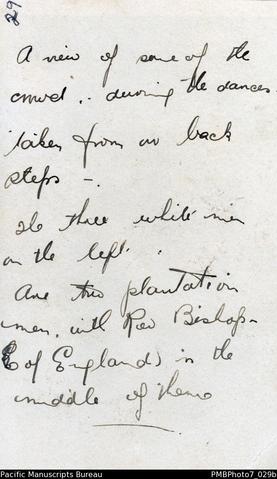 29
A view of some of the
crowd .. during the dances
taken from our back
steps -.
The three white men
on the left.
Are two plantation
men, with Rev Bishop-
C of England) in the
middle of them
Pacific Manuscripts Bureau
PMBPhoto7_029b